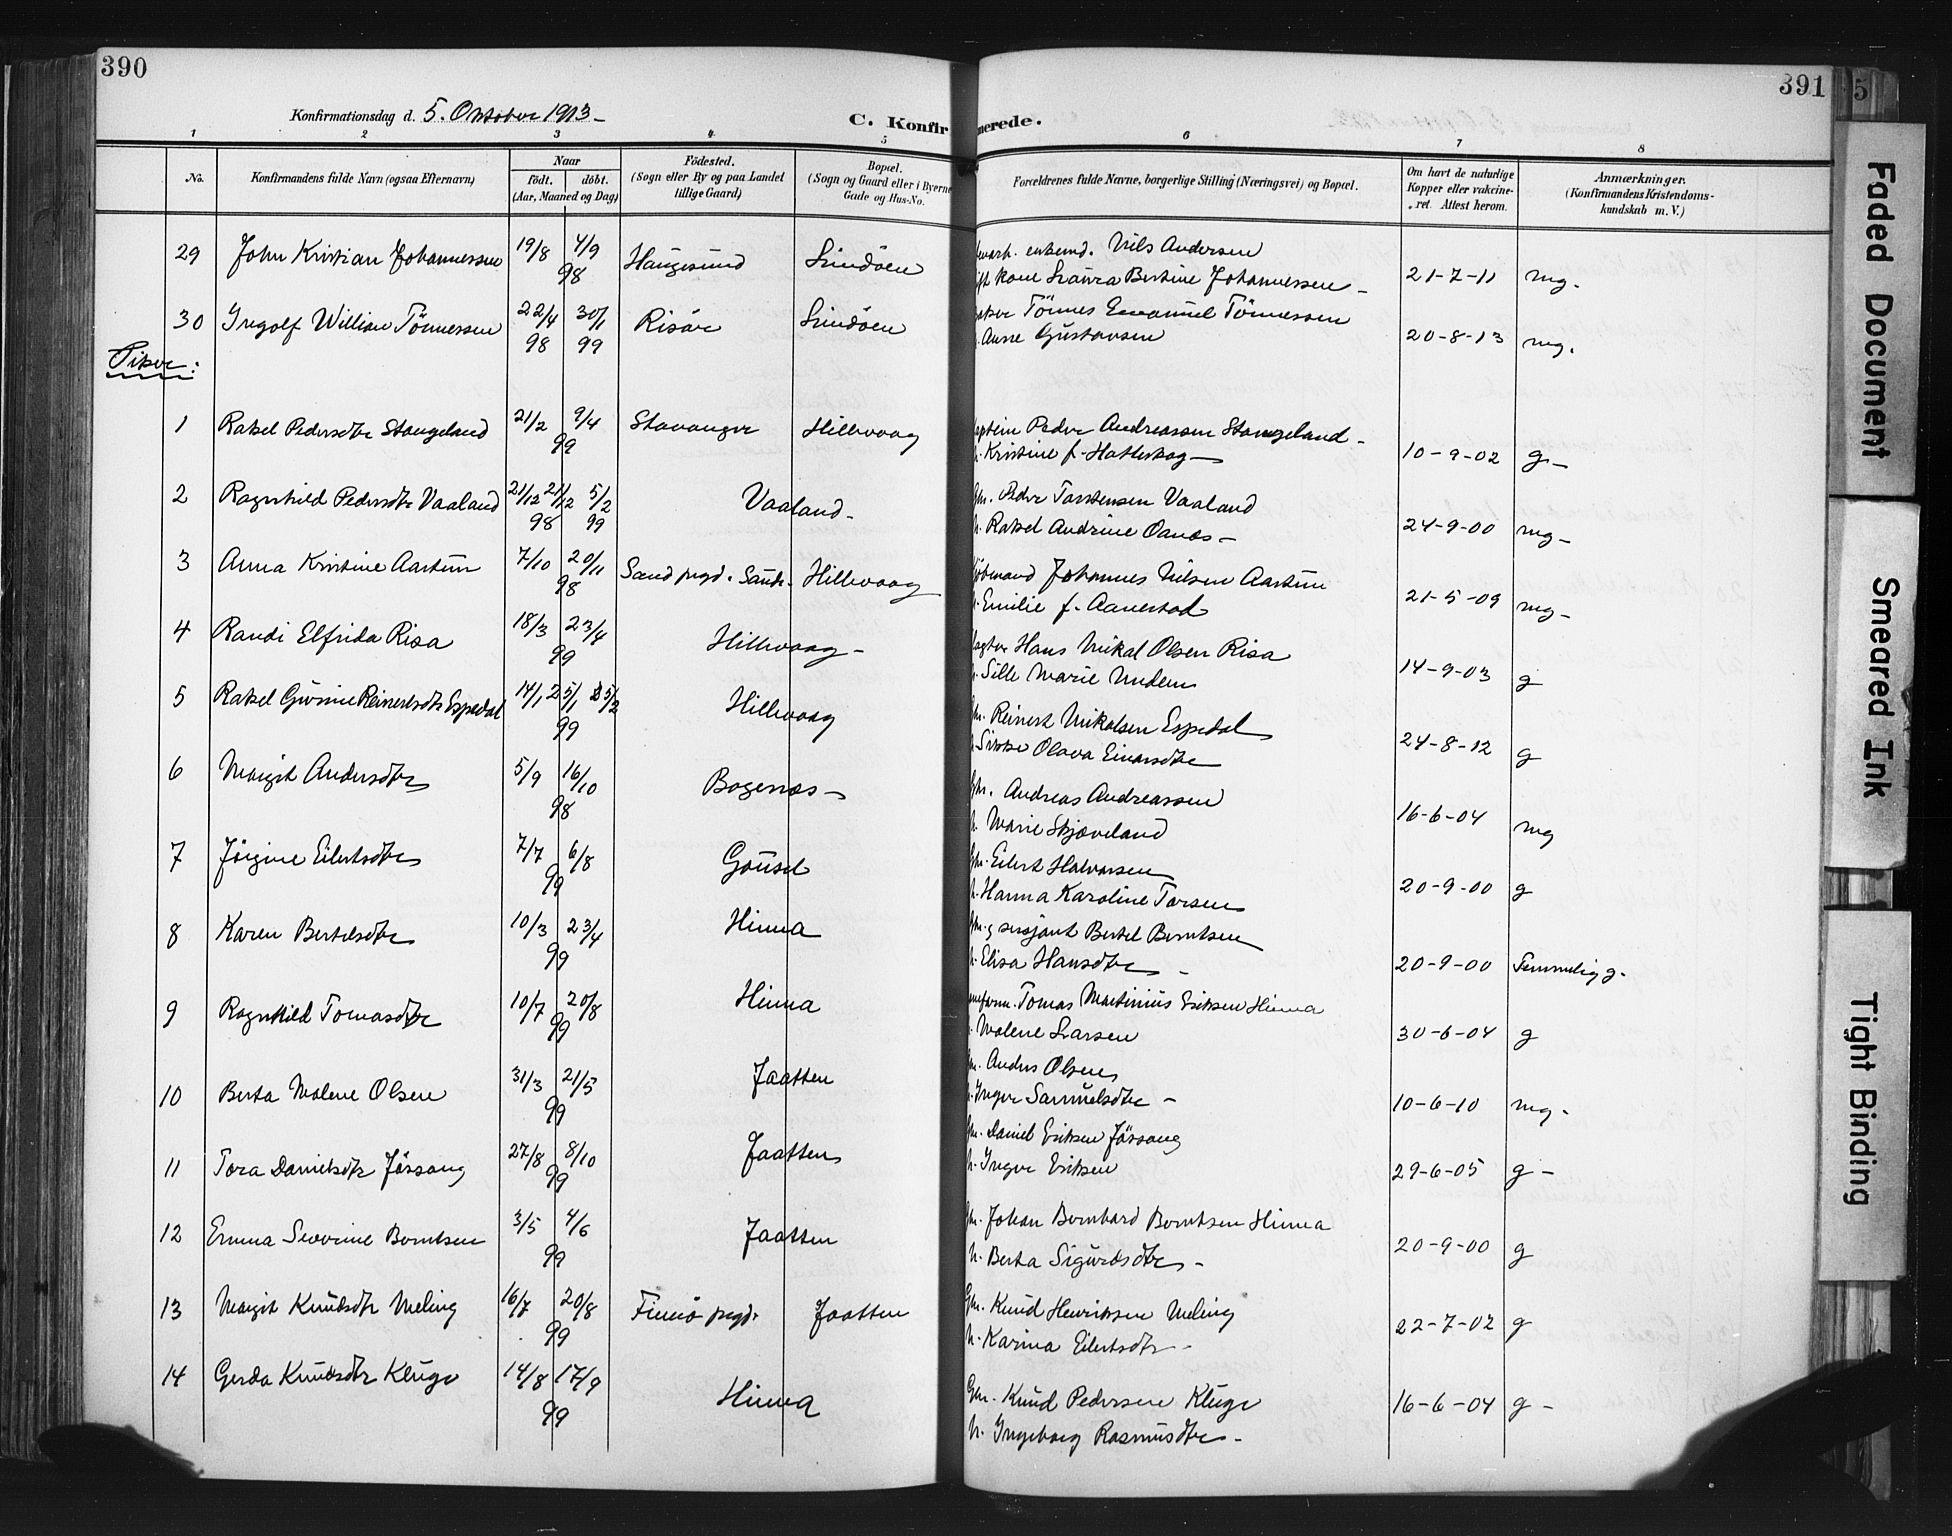 390
391
5
Konfirmationsdag d. 5. Oktober 1913.
C. Konfirmerede.
1 2 3 4 5 6 7 8
No.
Konfirmandens fulde Navn (ogsaa Efternavn)
Naar
født. døbt.
(Aar, Maaned og Dag)
Fødested.
(Sogn eller By og paa Landet
tillige Gaard)
Bopæl.
(Sogn og Gaard eller i Byerne
Gade og Hus-No.
Forældrenes fulde Navne, borgerlige Stilling (Næringsvei) og Bopæl.
Om havt de naturlige
Kopper eller vakcine-
ret. Attest herom.
Anmærkninger.
(Konfirmandens Kristendoms-
kundskab m. V.)
29 John Kristian Johannessen 19/8 4/9 98 Haugesund Lindöen enkemd. Nils Andersen
kone Laura Bertine Johannessen - 21-7-11 mg.
30 Ingolf William Tönnessen 22/4 98 30/1 99 Risör Lindöen Tönnes Emanuel Tönnessen
Anne Gustavsen 20-8-13 mg.
Piker:
1 Rakel Pedersdtr Stangeland 21/2 9/4 99 Stavanger Hillevaag Peder Andreassen Stangeland -
Kristine f. Hatleskog 10-9-02 g -
2 Ragnhild Pedersdtr Vaaland 21/12 21/12 98 5/2 99 Vaaland - Gm. Peder Torstensen Vaaland
h. Rakel Andrine Oanes - 24-9-00 mg -
3 Anna Kristine Aartun 7/10 20/11 98 Sand prgd. Sand. Hillevaag Johannes Nilsen Aartun
h. Emilie f. Aanestad 21-5-09 mg -
4 Randi Elfrida Risa 18/3 23/4 99 Hillevaag - Hans Mikal Olsen Risa
h. Sille Marie Undem 14-9-03 g
5 Rakel Gurine Reinertsdtr Espedal 14/1 25/1 25/2 99 Hillevaag Gm. Reinert Mikalsen Espedal
h. Sikke Olava Einarsdtr 24-8-12 g
6 Margit Andersdtr 5/9 16/10 98 Bogenæs - Gm. Andreas Andreassen
h. Marie Skjæveland 16-6-04 mg
7 Jörgine Eilertsdtr 7/7 6/8 99 Gausel Gm. Eilert Halvorsen
h. Hanna Karoline Torsen 20-9-00 g
8 Karen Bertelsdtr 10/3 23/4 99 Hinna Gm. g sersjant Bertel Berntsen
h. Elisa Hansdtr - 20-9-00 Temmelig g.
9 Ragnhild Tomasdtr 10/7 20/8 99 Hinna Tomas Martinius Eriksen Hinna
h. Malene Larsen 30-6-04 g
10 Berta Malene Olsen 31/3 21/5 99 Jaatten Gm. Anders Olsen
h. Inger Samuelsdtr - 10-6-10 mg -
11 Tora Danielsdtr Jössang 27/8 8/10 99 Jaatten Gm. Daniel Eriksen Jössang
h. Inger Eriksen 29-6-05 g -
12 Emma Severine Berntsen 3/5 4/6 99 Jaatten Gm. Johan Bernhard Berntsen Hinna
h. Berta Sigurdsdtr - 20-9-00 g
13 Margit Knudsdtr Meling 16/7 20/8 99 Finnö prgd. Jaatten Gm. Knud Henriksen Meling
h. Karina Eilertsdtr - 22-7-02 g
14 Gerda Knudsdtr Kluge 14/8 17/9 99 Hinna Gm. Knud Pedersen Kluge
h. Ingeborg Rasmusdtr - 16-6-04 g -
Faded Document
Smeared Ink
Tight Binding